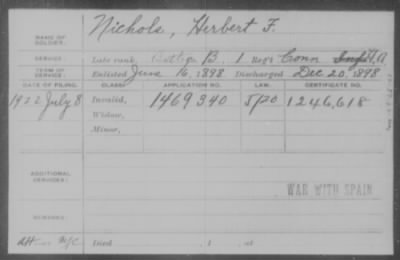 NAME OF SOLDIER: Nichols, Herbert F.
SERVICE: Late rank, Batty B, 1 Reg't Conn Inf H.A.
TERM OF SERVICE: Enlisted June 16, 1898 Discharged Dec. 20, 1898
DATE OF FILING. CLASS. APPLICATION NO. LAW. CERTIFICATE NO.
1922 July 8 Invalid, 1469340 5/20 1246,618
Widow,
Minor,
ADDITIONAL SERVICES:
WAR WITH SPAIN
REMARKS:
Died , 1 , at